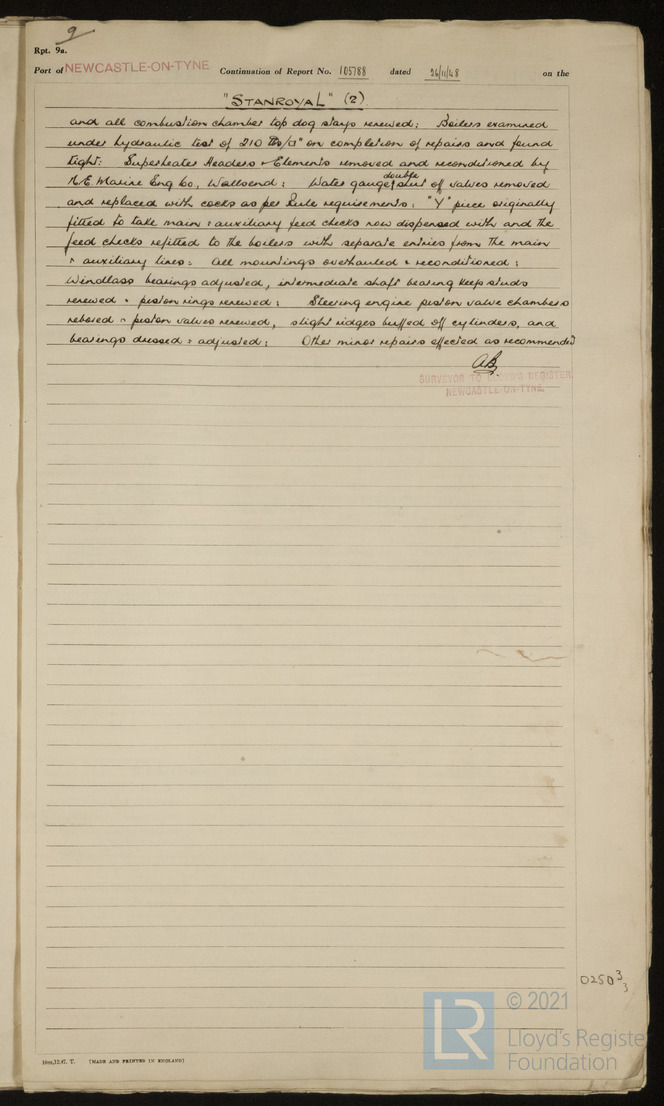 9
Rpt. 9a.
Port of NEWCASTLE-ON-TYNE Continuation of Report No. 105788 dated 26/11/48 on the
"STANROYAL" (2)
and all combustion chamber top dog stays renewed; Boilers examined
under hydraulic test of 210 lbs/□" on completion of repairs and found
tight: Superheater Headers & Elements removed and reconditioned by
N.E. Marine Eng Co, Wallsend; Water gauge double shut off valves removed
and replaced with cocks as per Rule requirements; "Y" piece originally
fitted to take main & auxiliary feed checks now dispensed with and the
feed checks refitted to the boilers with separate entries from the main
& auxiliary lines: All mountings overhauled & reconditioned;
Windlass bearings adjusted, intermediate shaft bearing keep studs
renewed & piston rings renewed; Steering engine piston valve chambers
rebored & piston valves renewed, slight ridges buffed off cylinders, and
bearings dressed & adjusted; Other minor repairs effected as recommended
AB
SURVEYOR TO LLOYD'S REGISTER
NEWCASTLE-ON-TYNE.
0250 3/3
LR
© 2021
Lloyd's Registe
Foundation
10m,12.47. T. (MADE AND PRINTED IN ENGLAND)